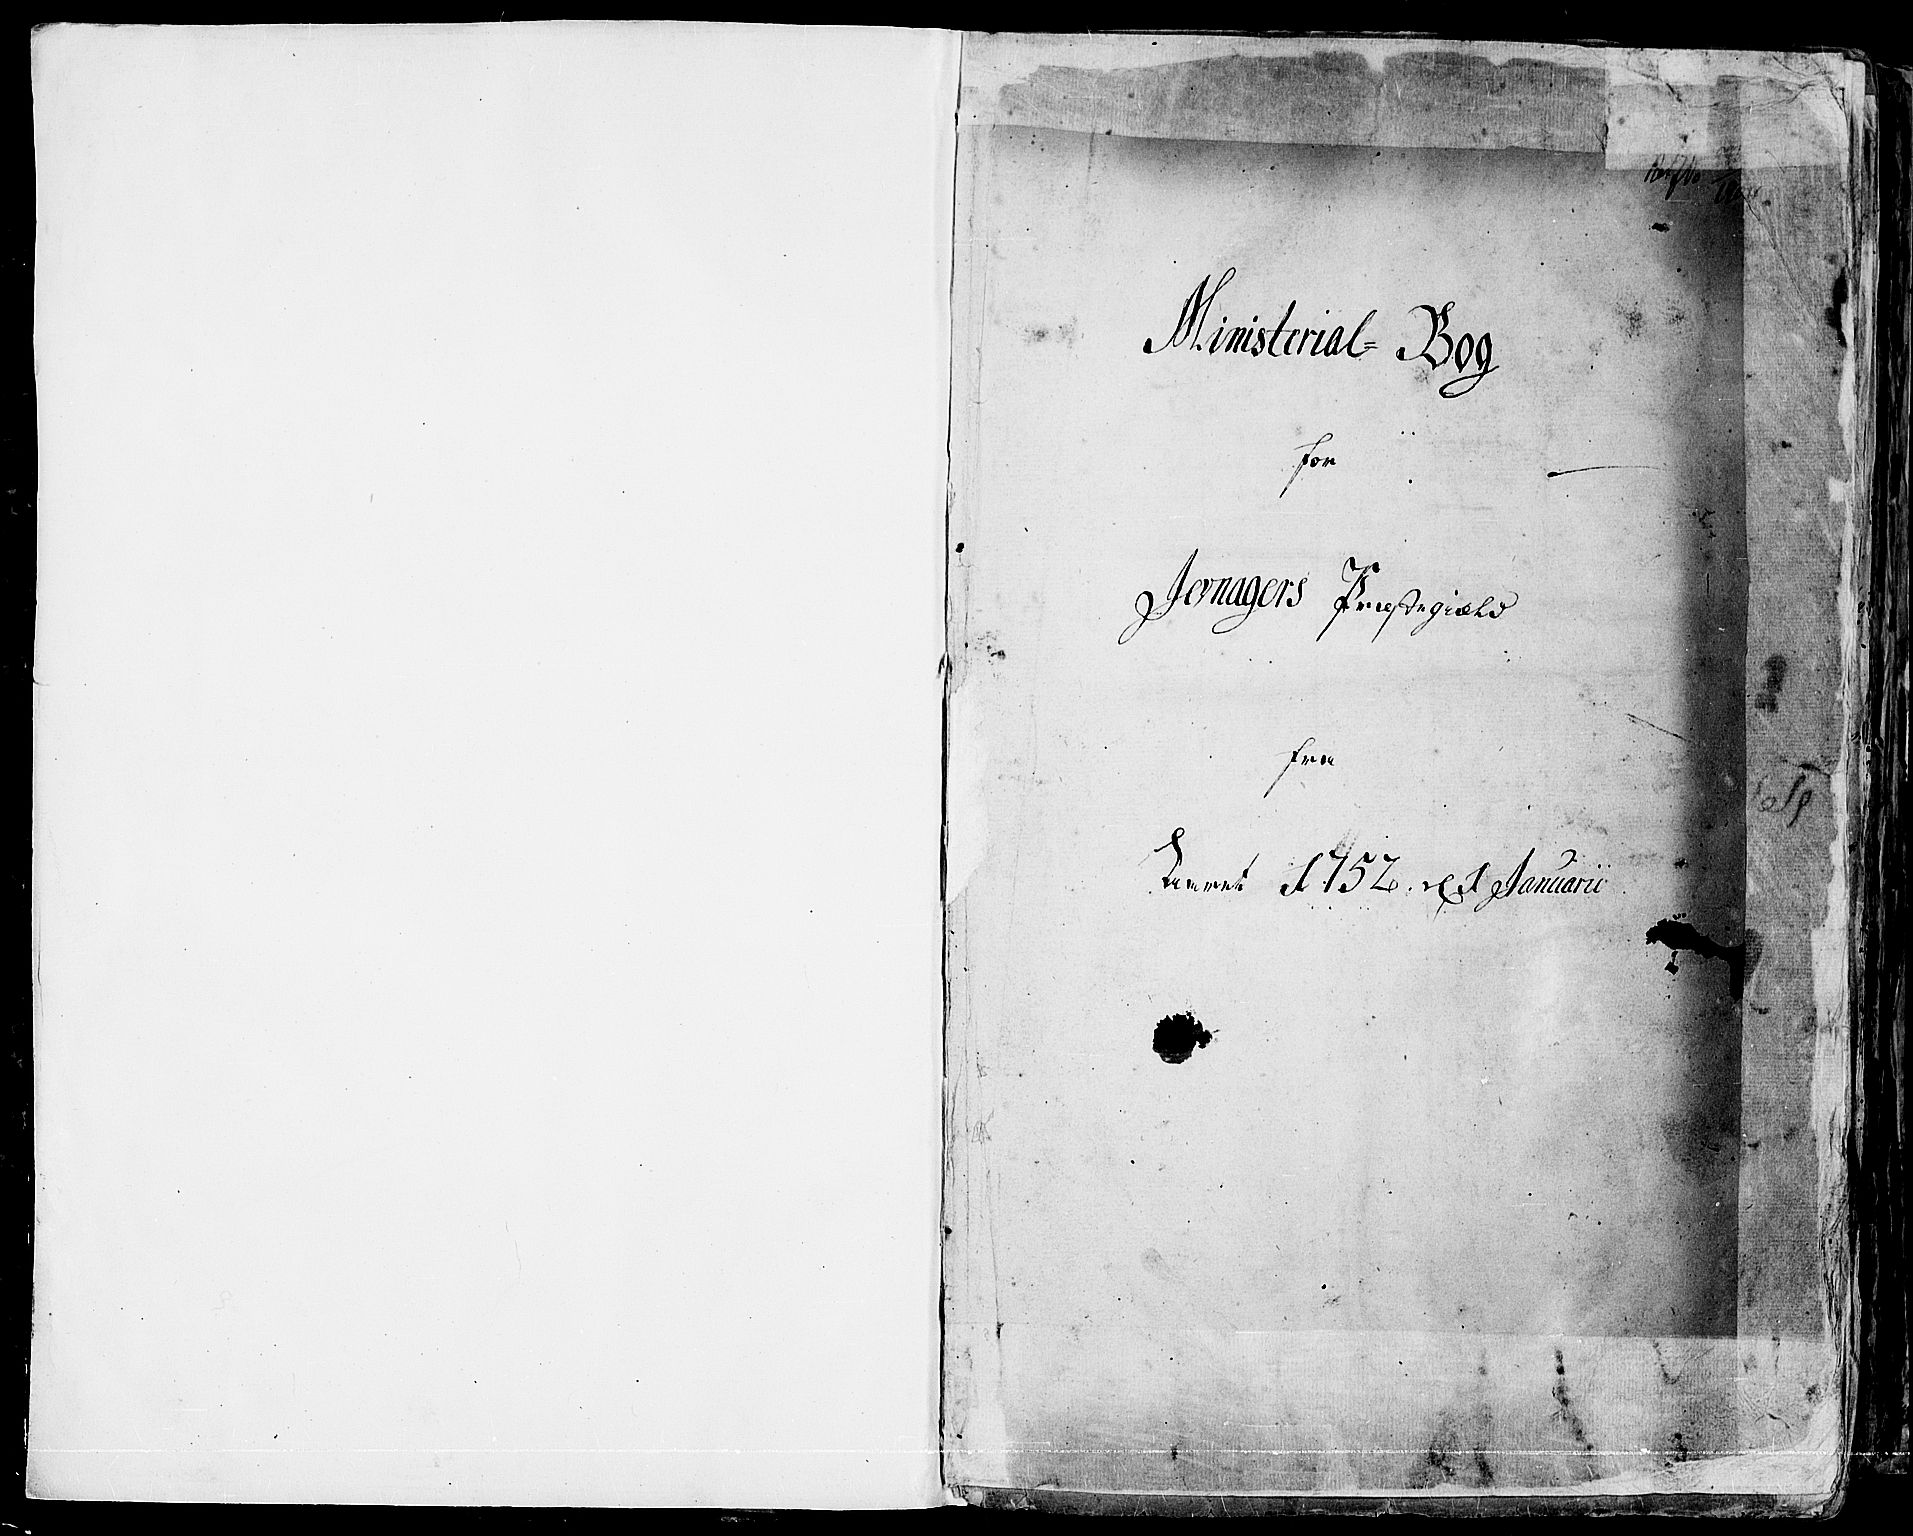 Ministerial= Bog
for
Jevnagers Præstegield
fra
Aaret 1752. d. 1 Januarii